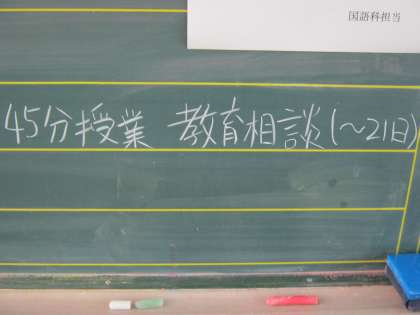 国語科担当
45分授業 教育相談(～21日)